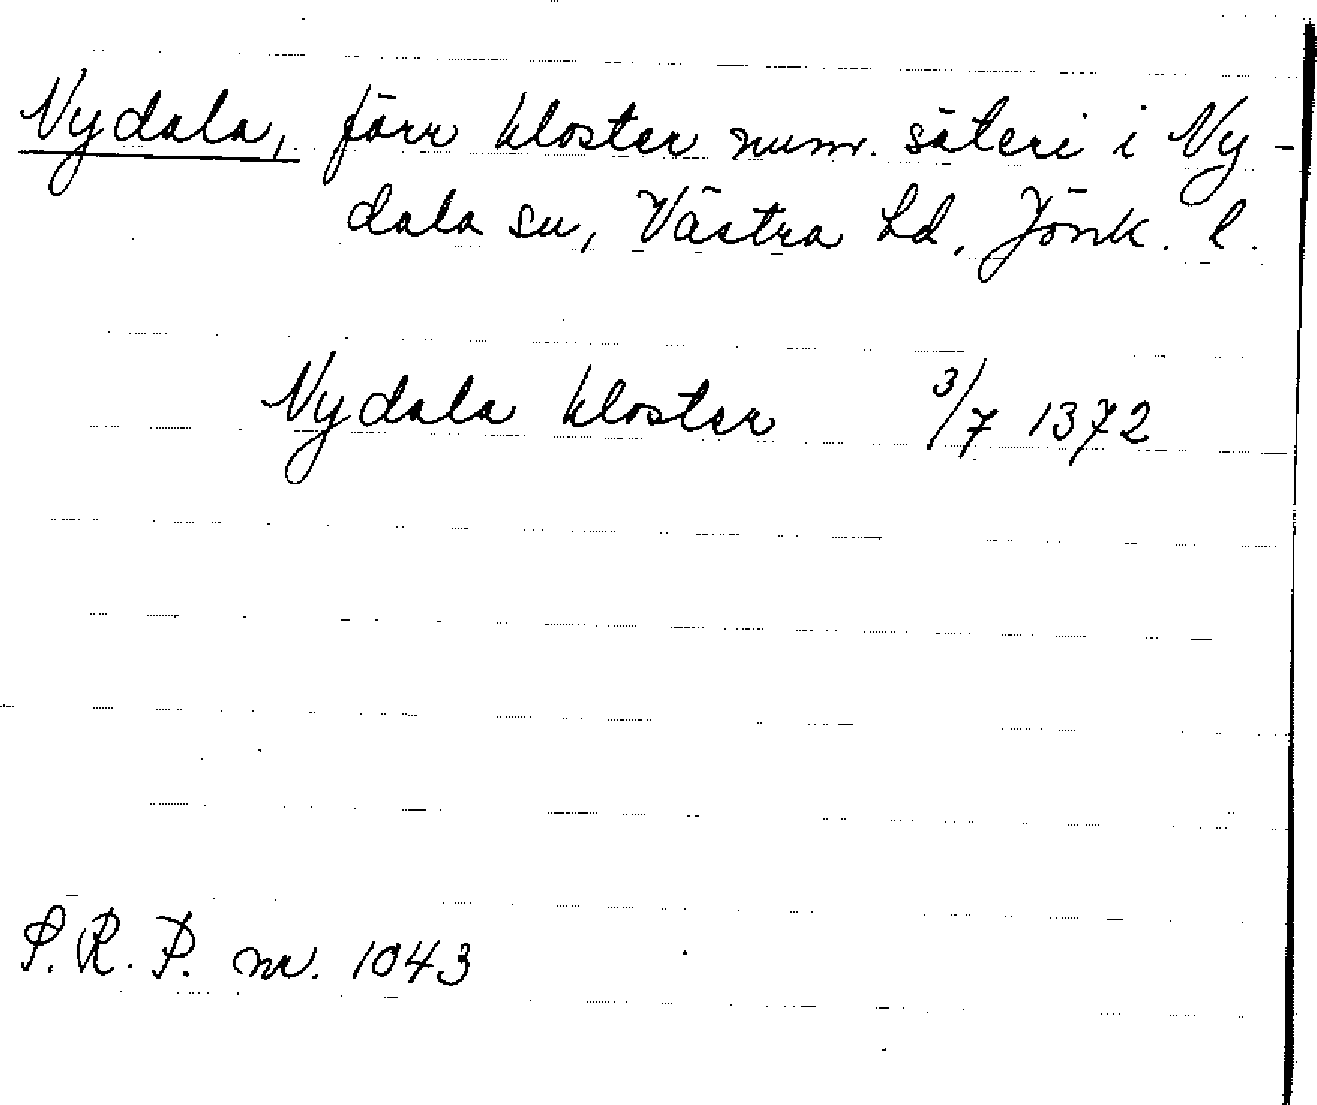 Nydala, förr kloster numr. säteri i Ny-
dala sn, Västra hd, Jönk. l.
Nydala kloster 3/7 1372
S.R.P. nr. 1043